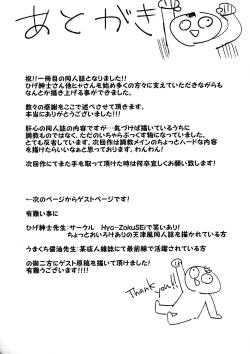 あとがき
祝!!一冊目の同人誌となりました!!
ひげ紳士さん他ヒャさんを始め多くの方々に支えていただきながらも
なんとか描き上げる事ができました。
数々の感謝をここで述べさせて頂きます。
本当にありがとうございました!!!
肝心の内容ですが…気づけば描いているうちに
調教ものではなく、ただのいちゃらぶっくす物になっていました。
とても反省しています。次回作は調教メインのちょっとハードな内容
を描けたらいいなぁと思っております。わんわん!
次回作にてまた手を取って頂けた時は何卒宜しくお願い致します!
←次のページからゲストページです!
有難い事に
ひげ紳士先生:サークル Hyo-ZokuSEiで笑いあり!
ちょっとおいろけありの天津風同人誌を描かれている方
うまくち醤油先生:某成人雑誌にて最前線で活躍されている方
の御二方にゲスト原稿を描いて頂けました!
有難うございます!!!!
Thank you!!